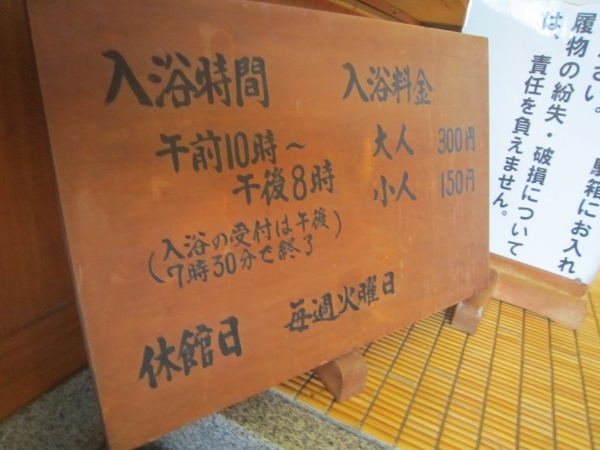 入浴時間
午前10時～
午後8時
(入浴の受付は午後
7時30分で終了)
入浴料金
大人 300円
小人 150円
休館日 毎週火曜日
さい。
箱にお入れ
履物の紛失・破損について
は、責任を負えません。